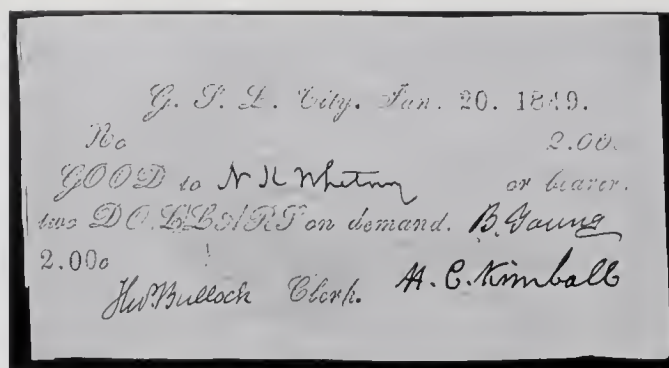 G. S. L. City. Jan. 20. 1849.
No 2.00.
GOOD to N K Whitney or bearer.
two DOLLARS on demand. B. Young
2.00.
Tho. Bullock Clerk. H. C. Kimball